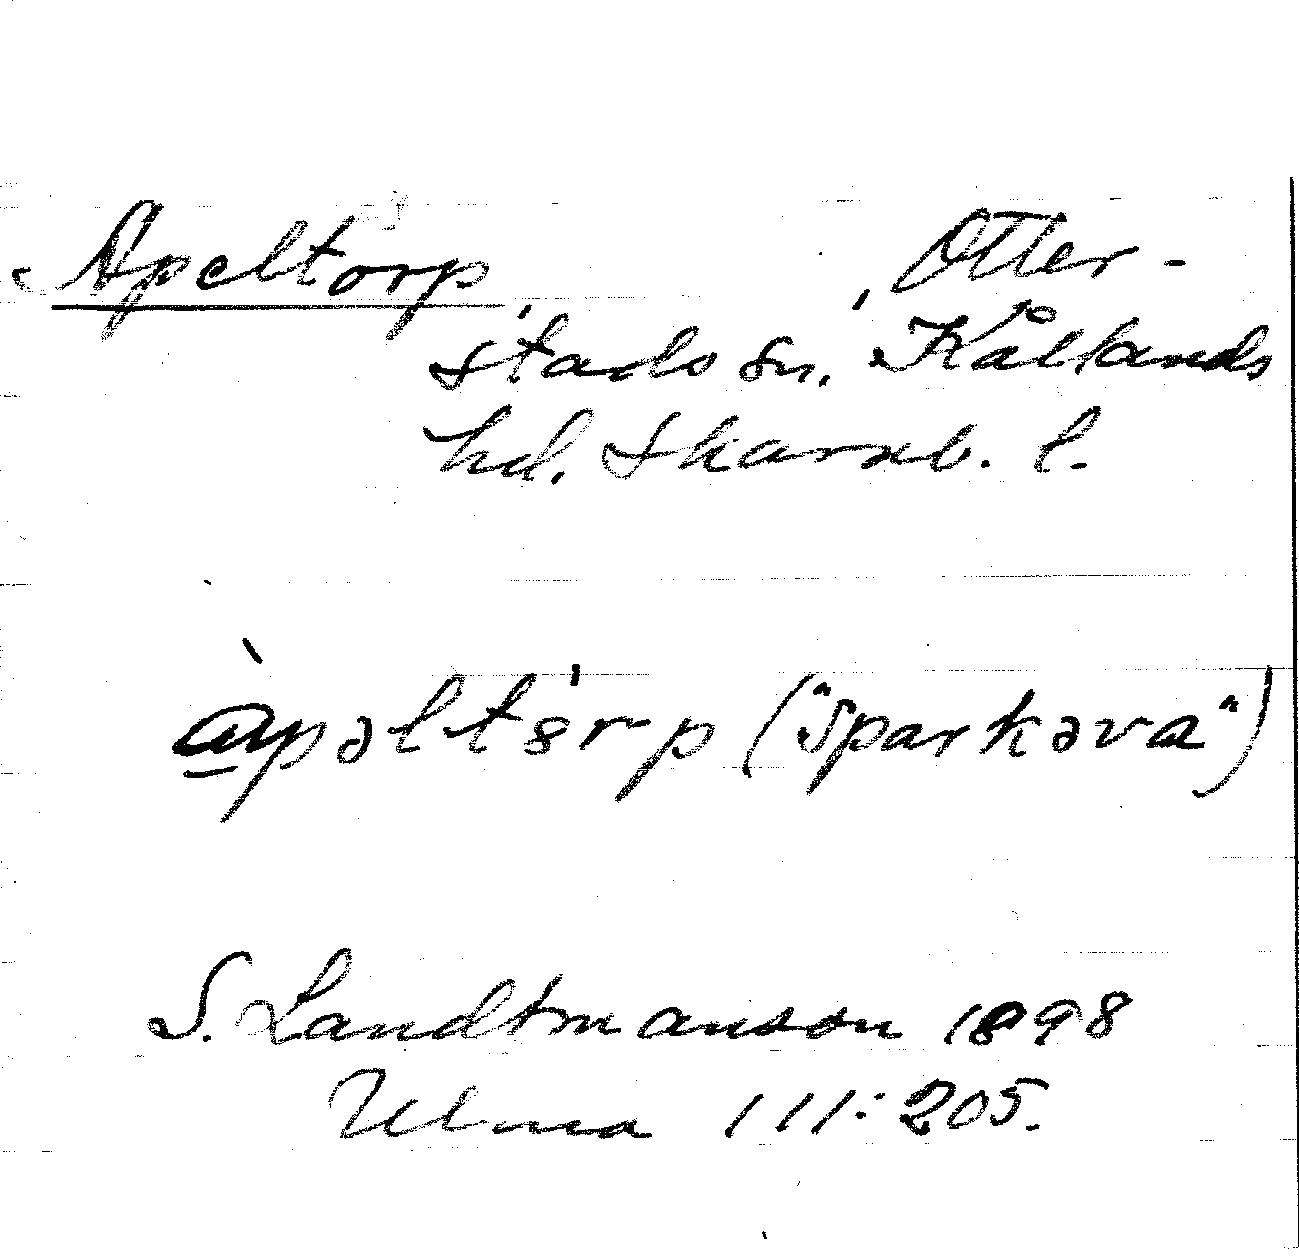 Apeltorp, Otter-
stads sn, Kållands
hd. Skarab. l.
àpəltərp ("Sparkəva")
S. Landtmanson 1898
Ulma 111:205.